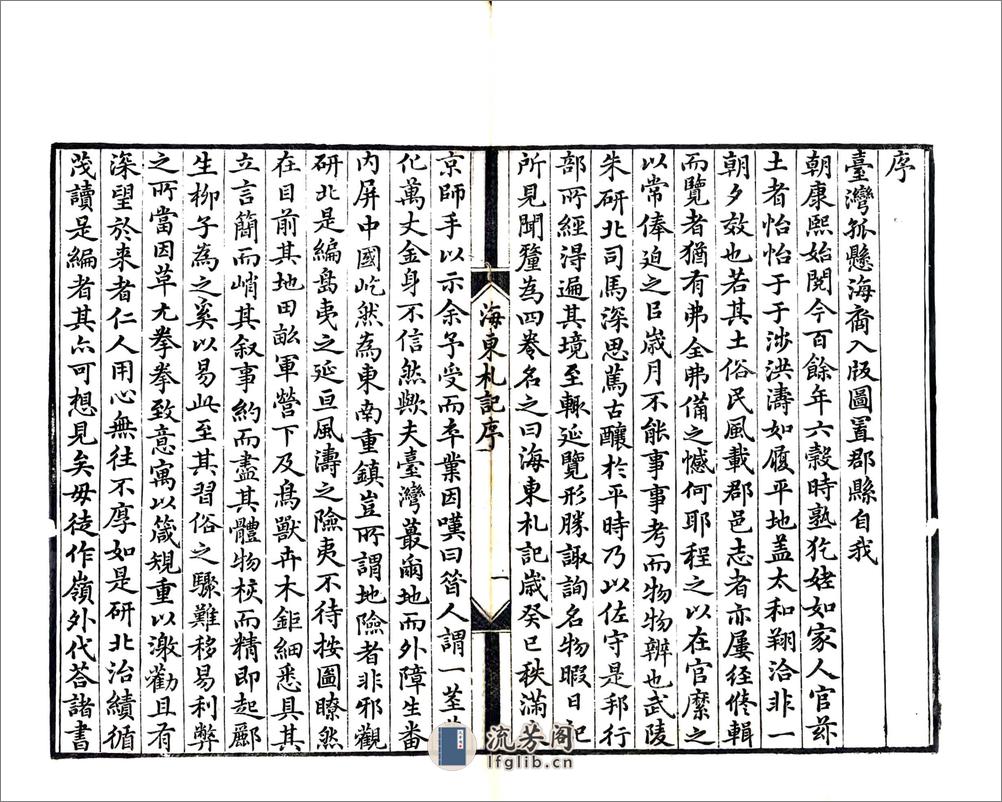 序
臺灣孤懸海裔入版圖置郡縣自我
朝康熙始閱今百餘年六穀時熟犵𡝩如家人官茲
土者怡怡于于涉洪濤如履平地葢太和翔洽非一
朝夕效也若其土俗民風載郡邑志者亦屢經修輯
而覽者猶有弗全弗備之憾何耶程之以在官縻之
以常俸迫之㠯歲月不能事事考而物物辨也武陵
朱研北司馬深思篤古釀於平時乃以佐守是邦行
部所經得遍其境至輙延覽形勝諏詢名物暇日記
所見聞釐為四卷名之曰海東札記歲癸巳秩滿
海東札記序
一
京師手以示余予受而卒業因嘆曰昔人謂一莖
化萬丈金身不信然歟夫臺灣蕞爾地而外障生番
內屏中國屹然為東南重鎮豈所謂地險者非邪觀
研北是編島夷之延亘風濤之險夷不待按圖瞭然
在目前其地田畝軍營下及鳥獸卉木鉅細悉具其
立言簡而峭其叙事約而盡其體物核而精即起酈
生柳子為之奚以易此至其習俗之驟難移易利弊
之所當因革尤拳拳致意寓以箴規重以激勸且有
深望於来者仁人用心無往不厚如是研北治績循
茂讀是編者其亦可想見矣毋徒作嶺外代荅諸書
流芳阁
lfglib.cn